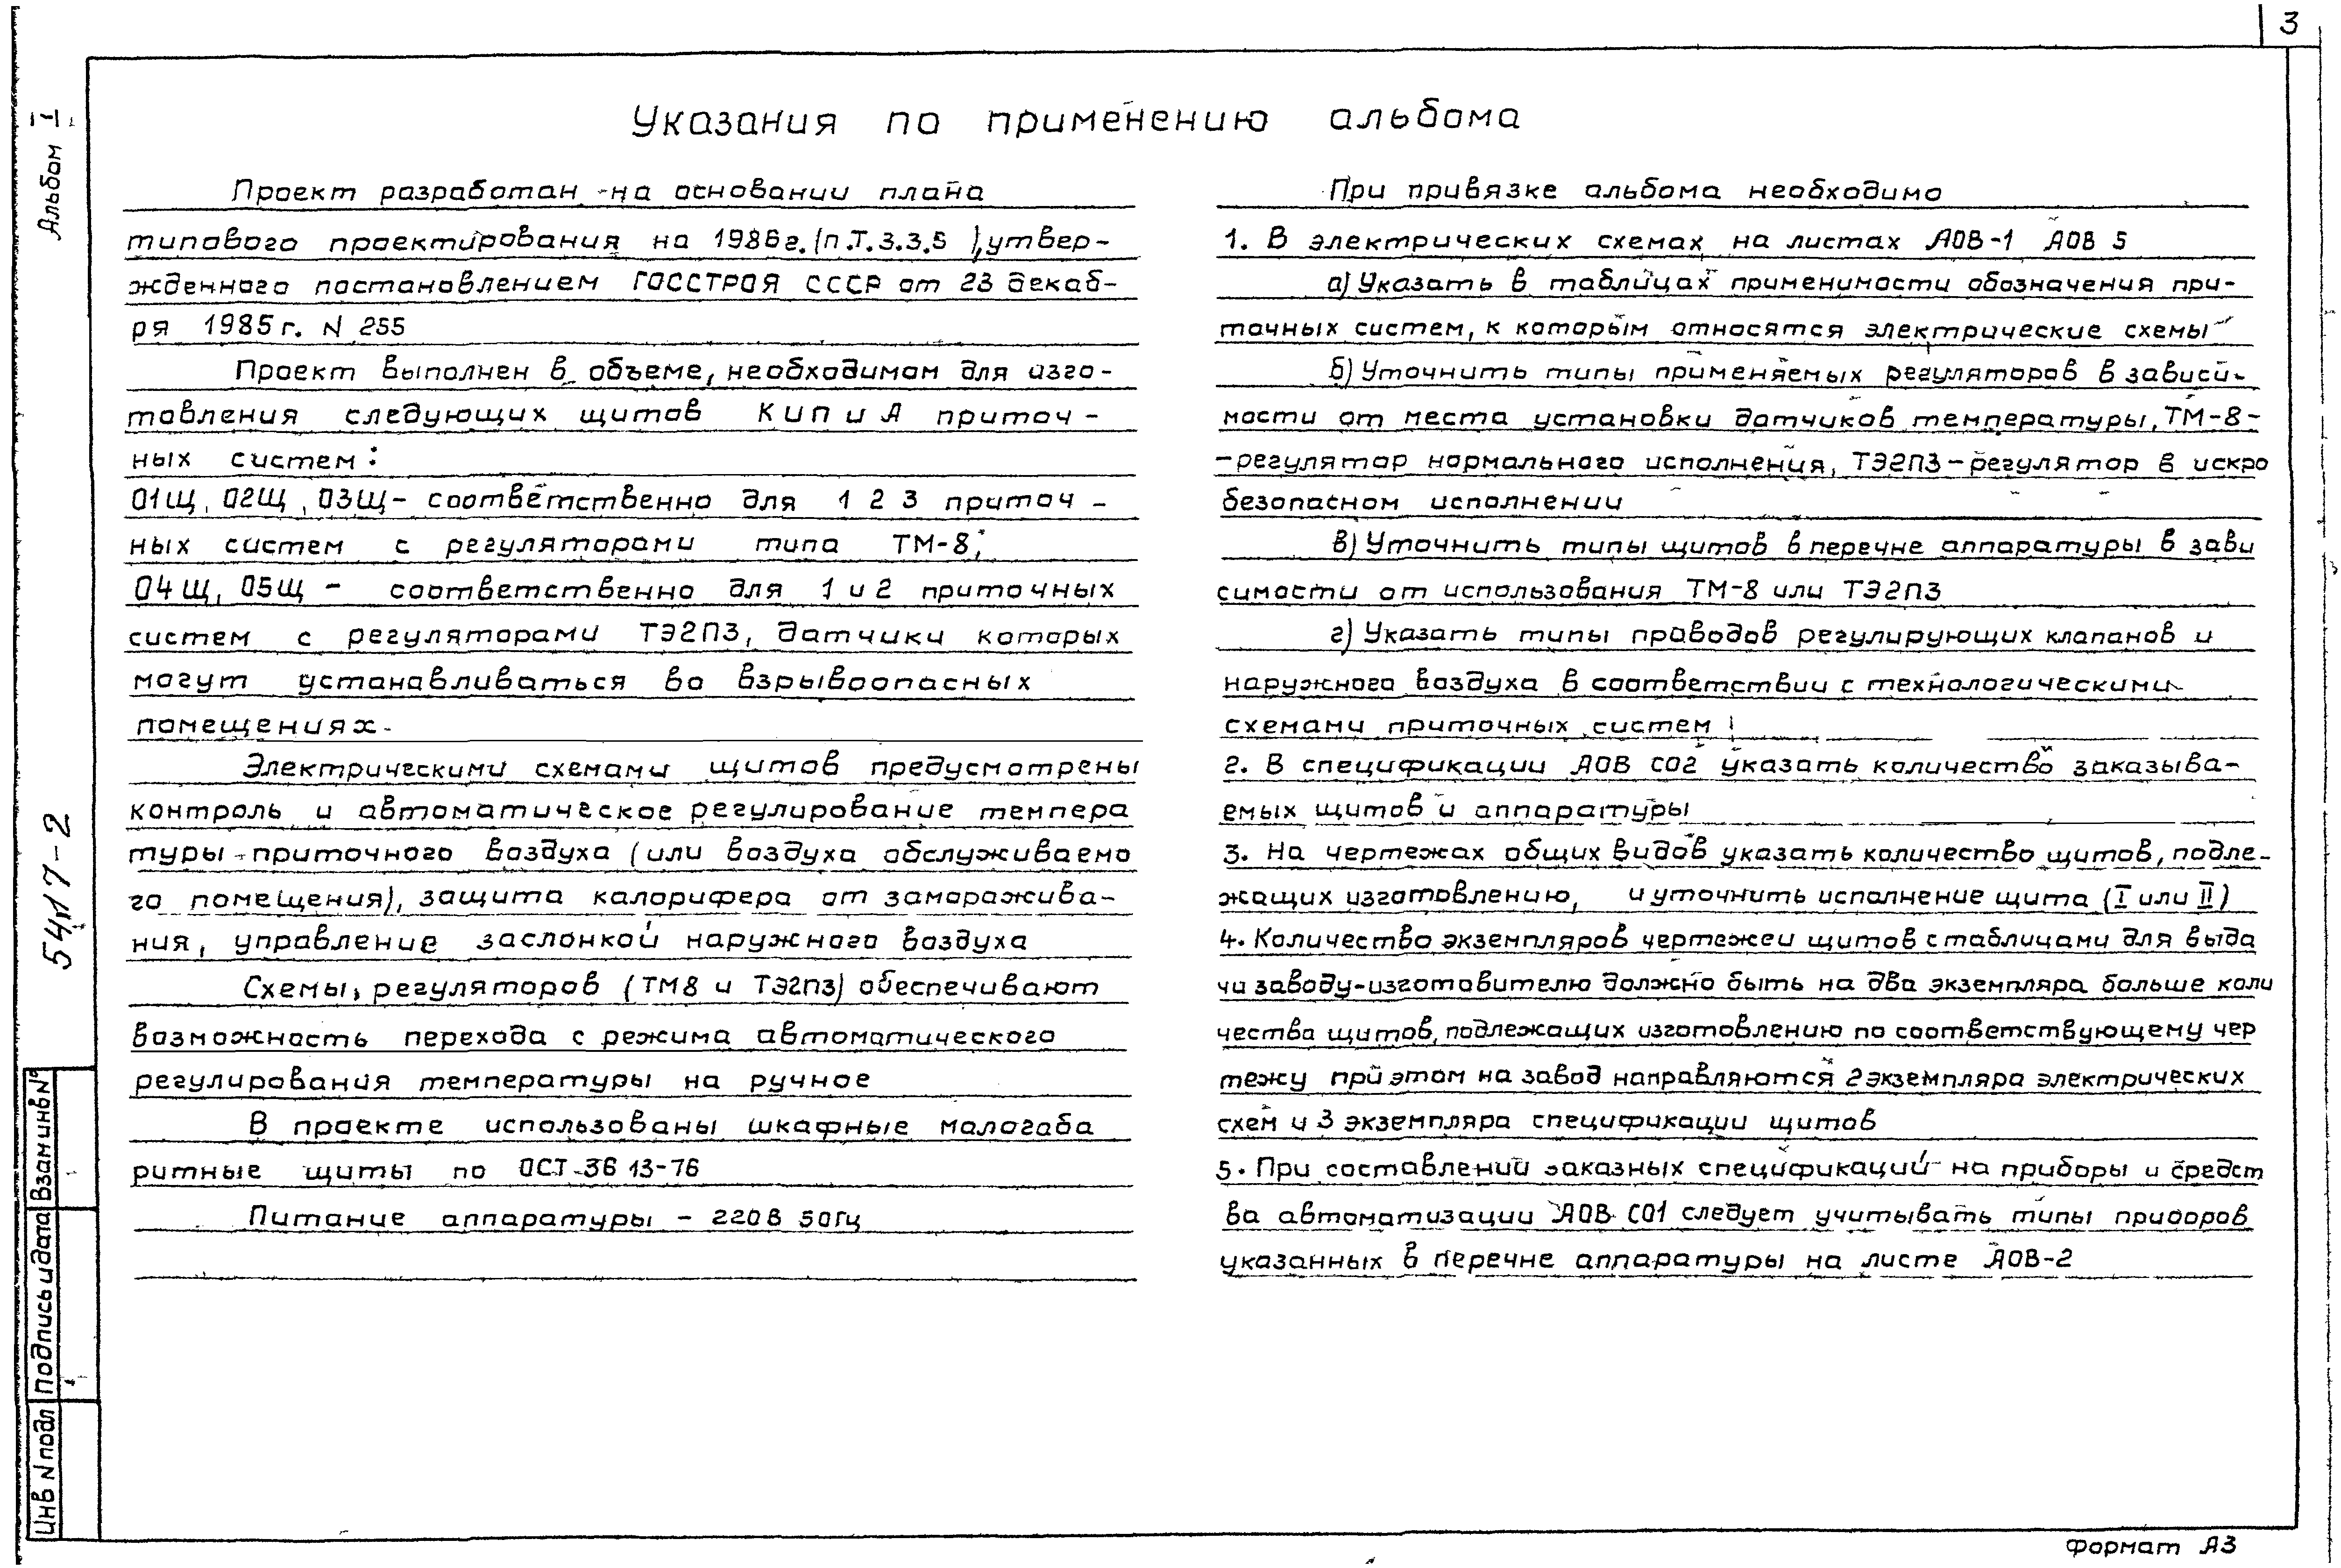 3
Альбом I
Указания по применению альбома
Проект разработан на основании плана
типового проектирования на 1986г. (п.Т.3.3.5), утвер-
жденного постановлением ГОССТРОЯ СССР от 23 декаб-
ря 1985г. N 255
Проект выполнен в объеме, необходимом для изго-
товления следующих щитов КИП и А приточ-
ных систем:
01Щ, 02Щ, 03Щ- соответственно для 1 2 3 приточ-
ных систем с регуляторами типа ТМ-8;
04Щ, 05Щ - соответственно для 1 и 2 приточных
систем с регуляторами ТЭ2ПЗ, датчики которых
могут устанавливаться во взрывоопасных
помещениях.
Электрическими схемами щитов предусмотрены
контроль и автоматическое регулирование темпера
туры приточного воздуха (или воздуха обслуживаемо
го помещения), защита калорифера от заморажива-
ния, управление заслонкой наружного воздуха
Схемы, регуляторов (ТМ8 и ТЭ2ПЗ) обеспечивают
возможность перехода с режима автоматического
регулирования температуры на ручное
В проекте использованы шкафные малогаба
ритные щиты по ОСТ 36 13-76
Питание аппаратуры - 220В 50Гц
При привязке альбома необходимо
1. В электрических схемах на листах АОВ-1 АОВ 5
а) Указать в таблицах применимости обозначения при-
точных систем, к которым относятся электрические схемы
б) Уточнить типы применяемых регуляторов в зависи-
мости от места установки датчиков температуры, ТМ-8-
-регулятор нормального исполнения, ТЭ2ПЗ-регулятор в искро
безопасном исполнении
в) Уточнить типы щитов в перечне аппаратуры в зави
симости от использования ТМ-8 или ТЭ2ПЗ
г) Указать типы проводов регулирующих клапанов и
наружного воздуха в соответствии с технологическими
схемами приточных систем
2. В спецификации АОВ СО2 указать количество заказыва-
емых щитов и аппаратуры
3. На чертежах общих видов указать количество щитов, подле-
жащих изготовлению, и уточнить исполнение щита (I или II)
4. Количество экземпляров чертежей щитов с таблицами для выда
чи заводу-изготовителю должно быть на два экземпляра больше коли
чества щитов, подлежащих изготовлению по соответствующему чер
тежу при этом на завод направляются 2 экземпляра электрических
схем и 3 экземпляра спецификации щитов
5. При составлении заказных спецификаций на приборы и средст
ва автоматизации АОВ СО1 следует учитывать типы приборов
указанных в перечне аппаратуры на листе АОВ-2
5417-2
Взам инв N°
Подпись и дата
Инв N подл
Формат А3